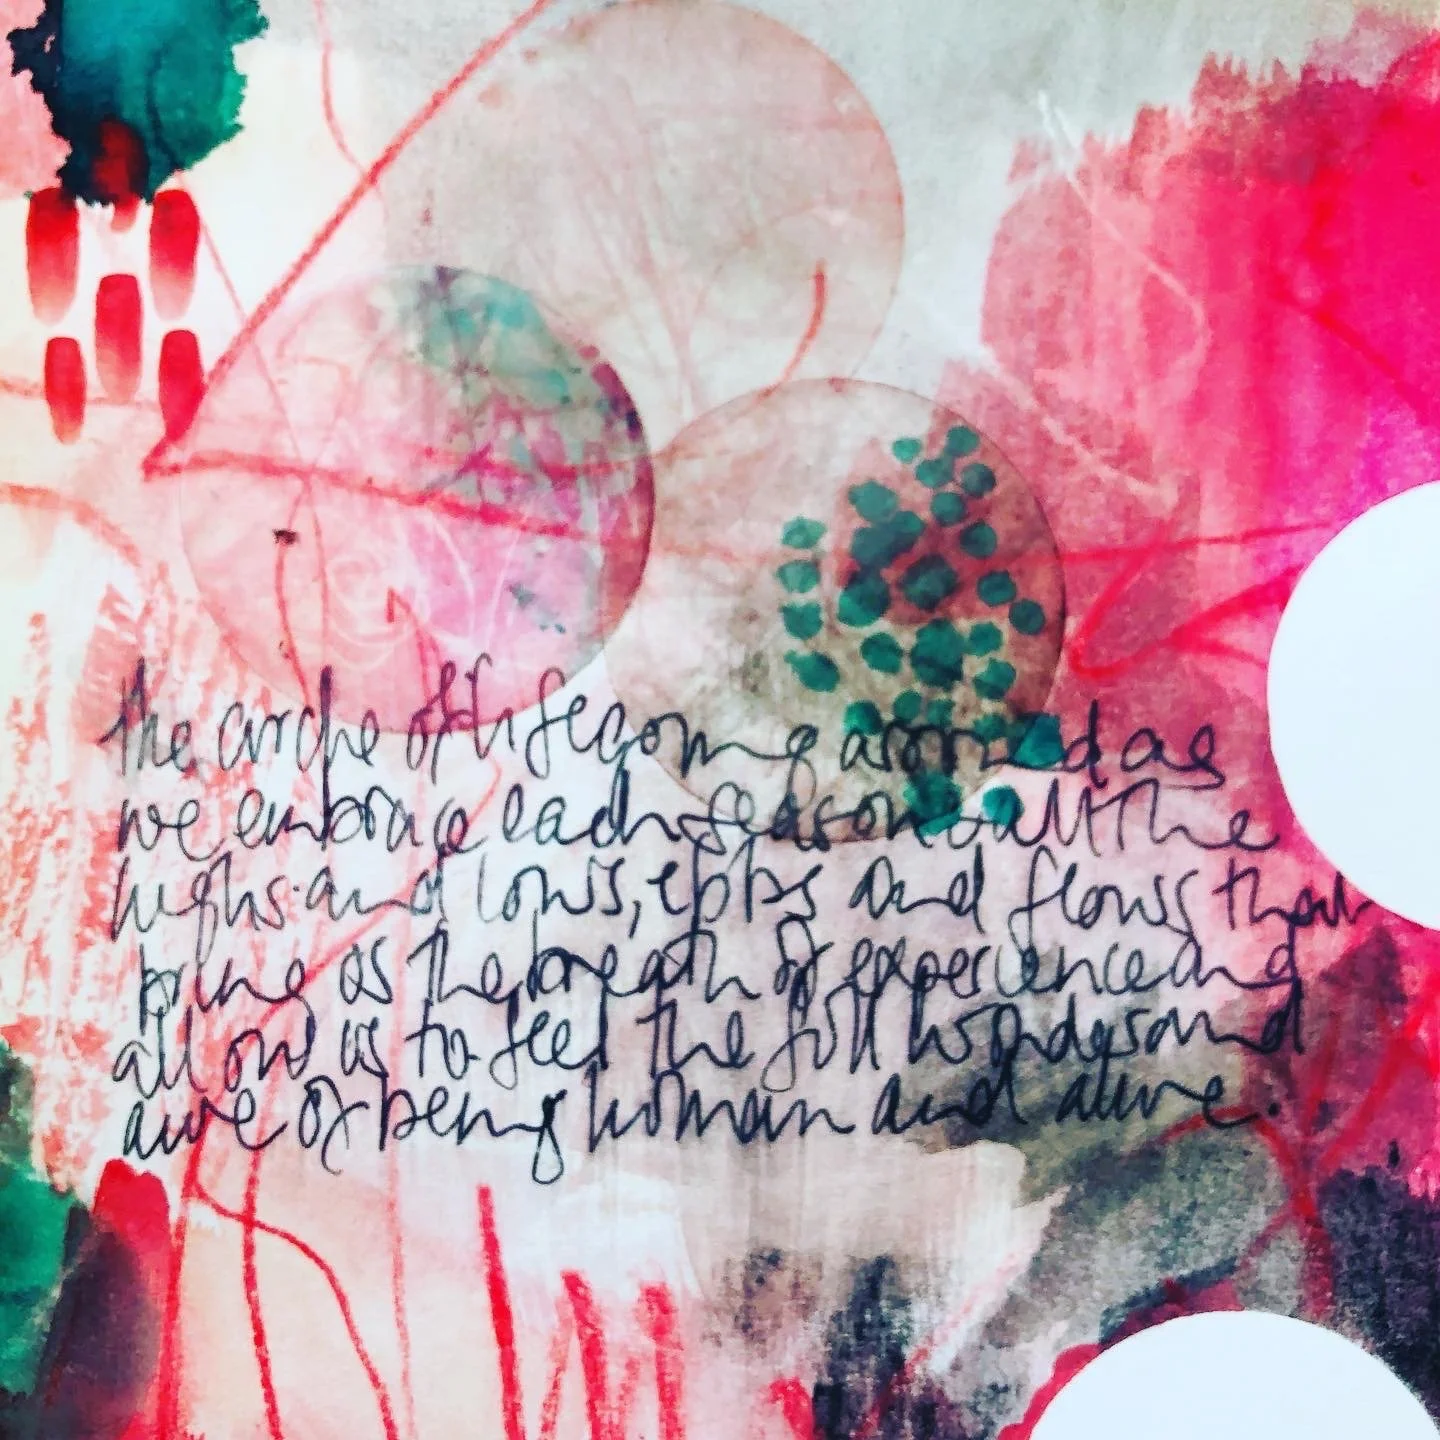 the circle of life going around as
we embrace each season & all the
highs and lows, ebbs and flows that
bring us the breath of experience and
allow us to feel the full wonder and
awe of being human and alive.